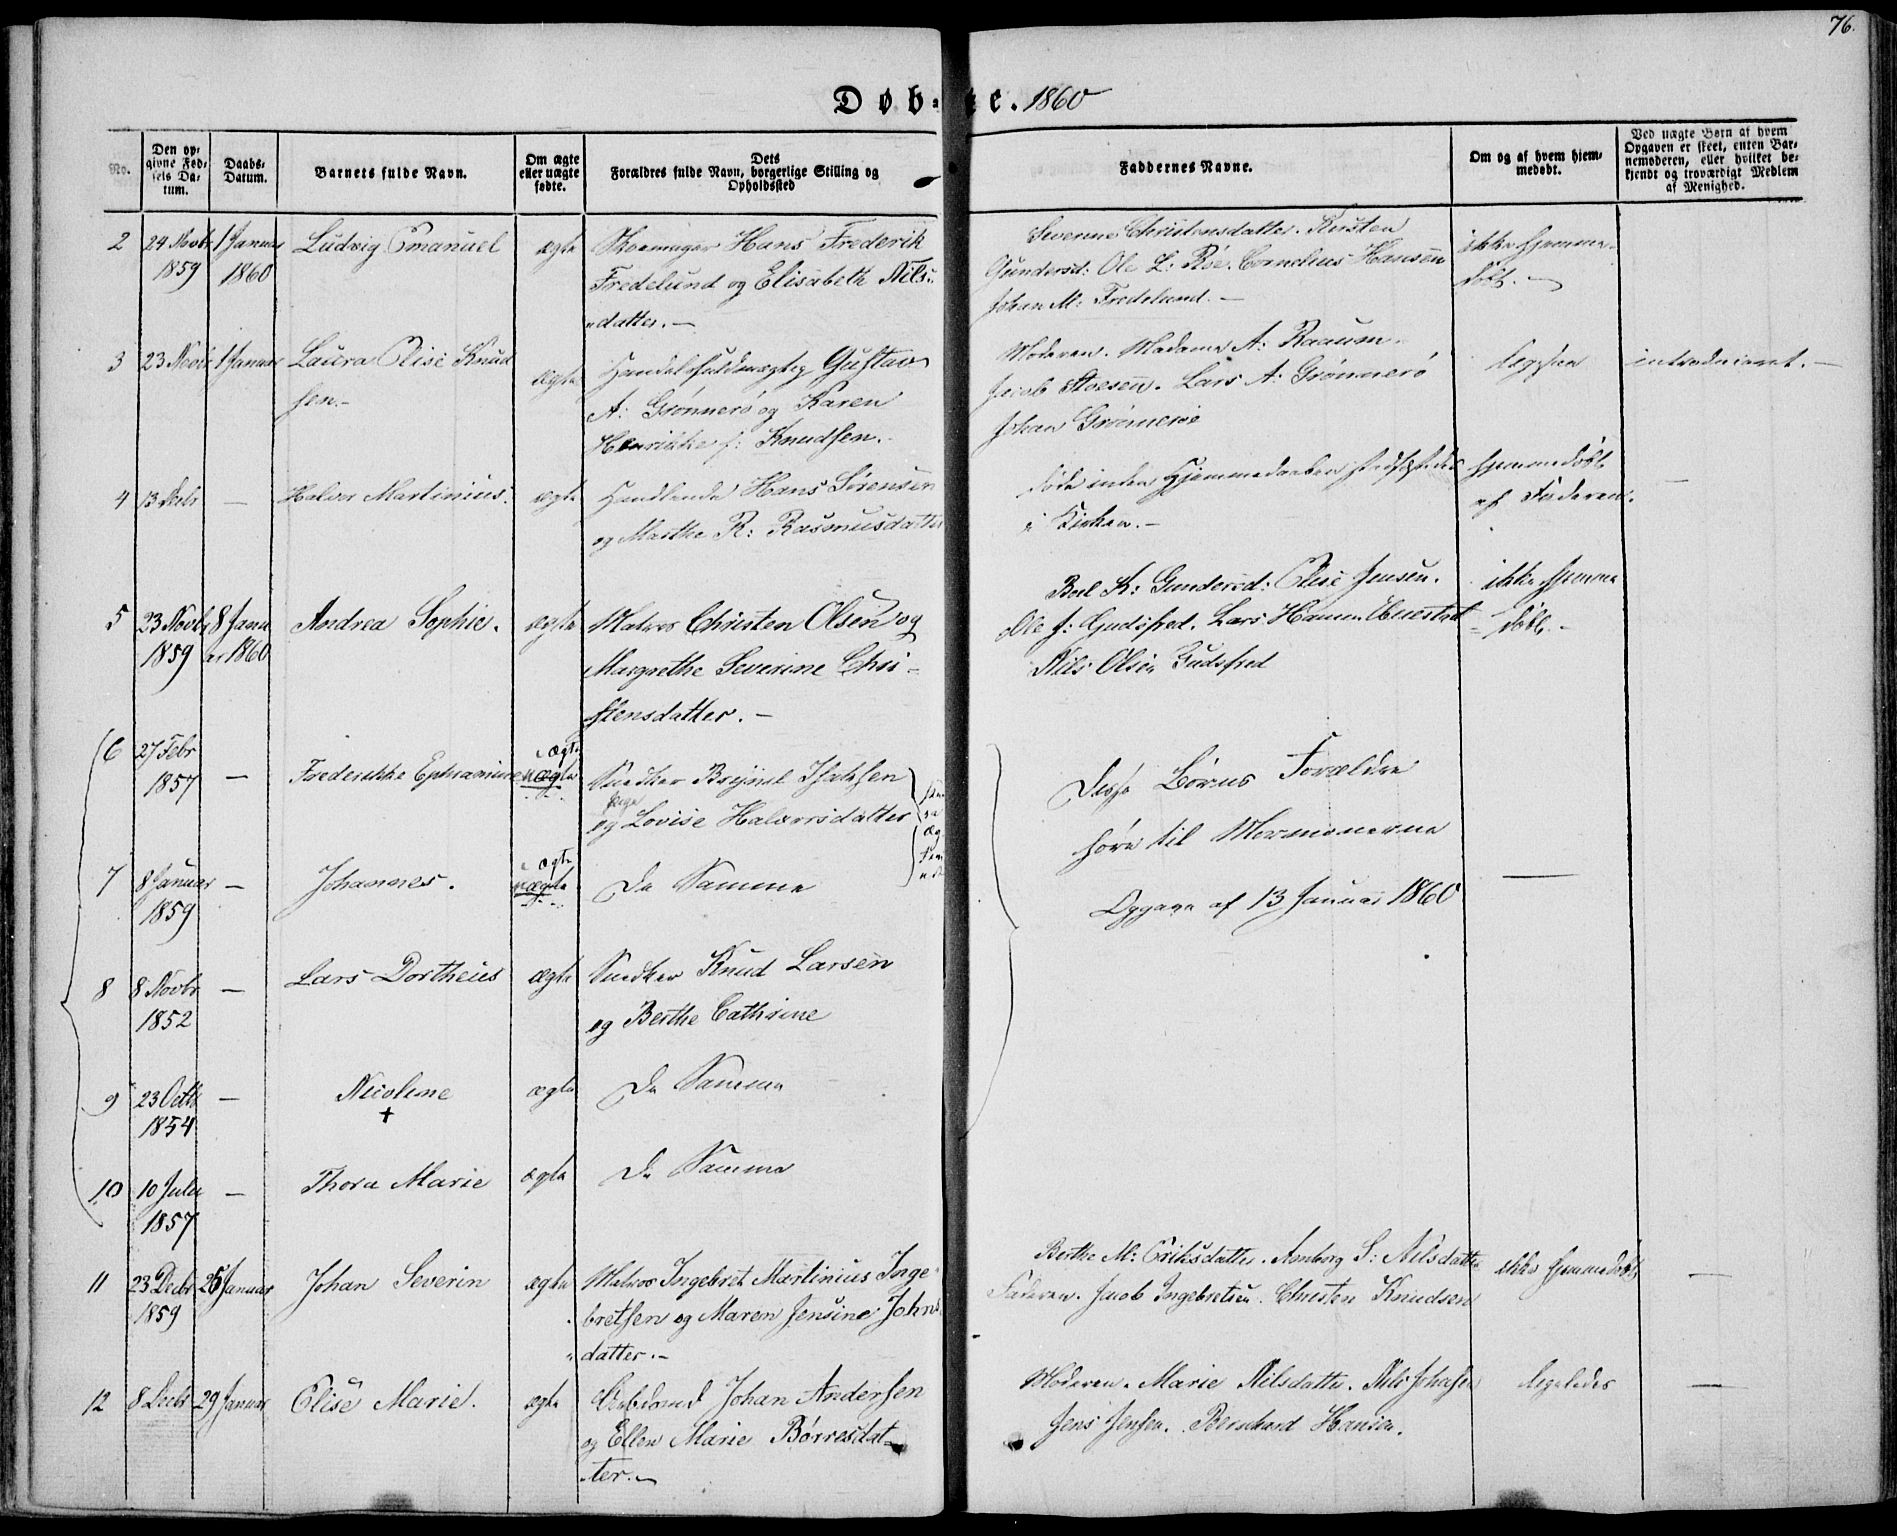 76.
Døb-te. 1860
No.
Den op-
givne Fød-
sels Da-
tum.
Daabs-
Datum.
Barnets fulde Navn.
Om ægte
eller uægte
fødte.
Dets
Forældres fulde Navn, borgerlige Stilling og
Opholdssted
Faddernes Navne.
Om og af hvem hjem-
medøbt.
Ved uægte Børn af hvem
Opgaven er skeet, enten Bar-
nemoderen, eller hvilket be-
kjendt og troværdigt Medlem
af Menighed.
2 24 Novbr 1 Januar Ludvig Emanuel ægte Skomager Hans Frederik
1859 1860 Fredelund og Elisabeth Nils-
datter.-
Severine Christensdatter. Kirsten
Gundersd: Ole L: Röe. Cornelius Hansen
Johan M: Fredelund.-
ikke hjemme-
døbt.-
3 23 Novbr 1 Januar Laura Elise Knud
sen.-
ægte Handelsfuldmægtig Gustav
A: Grönnerö og Karen
Henrikke f: Knudsen.
Moderen. Madame A: Raaum.
Jacob Stoesen. Lars A: Grönnerö
Johan Grönneröe
ligesaa introduceret.-
4 13 Decbr - Halvor Martinius. ægte Handlende Hans Sörensen
og Marthe R: Rasmusdatter
døde inden Hjemmedaaben stadfæstedes
i Kirken.-
hjemmedøbt
af Faderen.
-
5 23 Novbr 8 Janu Andrea Sophie. ægte Matros Christen Olsen og
1859 ar 1860 Margrethe Severine Chri-
stensdatter.-
Berl K: Gundersd: Elise Jensen.
Ole J: Gudsfred. Lars Hansen
Nils Olsen Gudsfred
ikke hjemme
døbt.-
6 27 Febr - Frederikke Ephramine ægte
1857 uægte
Snedker Brynel Isaksen
Pige
og Lovise Halvorsdatter
7 8 Januar - Johannes. ægte
1859 uægte
De Samme
Disse Börns Forældre
høre til Mormonerne
Opgave af 13 Januar 1860
-
8 8 Novbr - Lars Dortheus ægte Snedker Knud Larsen
1852 og Berthe Cathrine
9 23 Octbr - Nicoline ægte De Samme
1854 +
10 10 Juli - Thora Marie ægte De Samme
1857
11 23 Decbr 26 Januar Johan Severin ægte Matros Ingebret Martinius Inge-
1859 bretsen og Maren Jensine Johns
datter.-
Berthe M: Eriksdatter. Amborg S: Nilsdatter
Faderen. Jacob Ingebretsen. Christen Knudsen
ikke hjemmedøbt -
12 8 Decbr 29 Januar Elise Marie. ægte Arbeidsmd Johan Andersen
og Ellen Marie Börresdat-
ter.-
Moderen. Marie Nilsdatter. Nils Johnsen
Jens Jensen. Bernhard Hansen.
ligeledes -